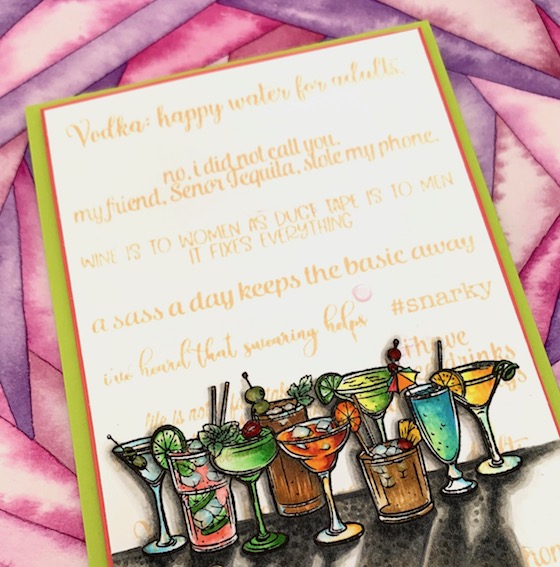 Vodka: happy water for adults.
no. i did not call you.
my friend, Señor Tequila, stole my phone.
WINE IS TO WOMEN AS DUCT TAPE IS TO MEN
IT FIXES EVERYTHING
a sass a day keeps the basic away
i've heard that swearing helps
#snarky
i have
drinks
life is not